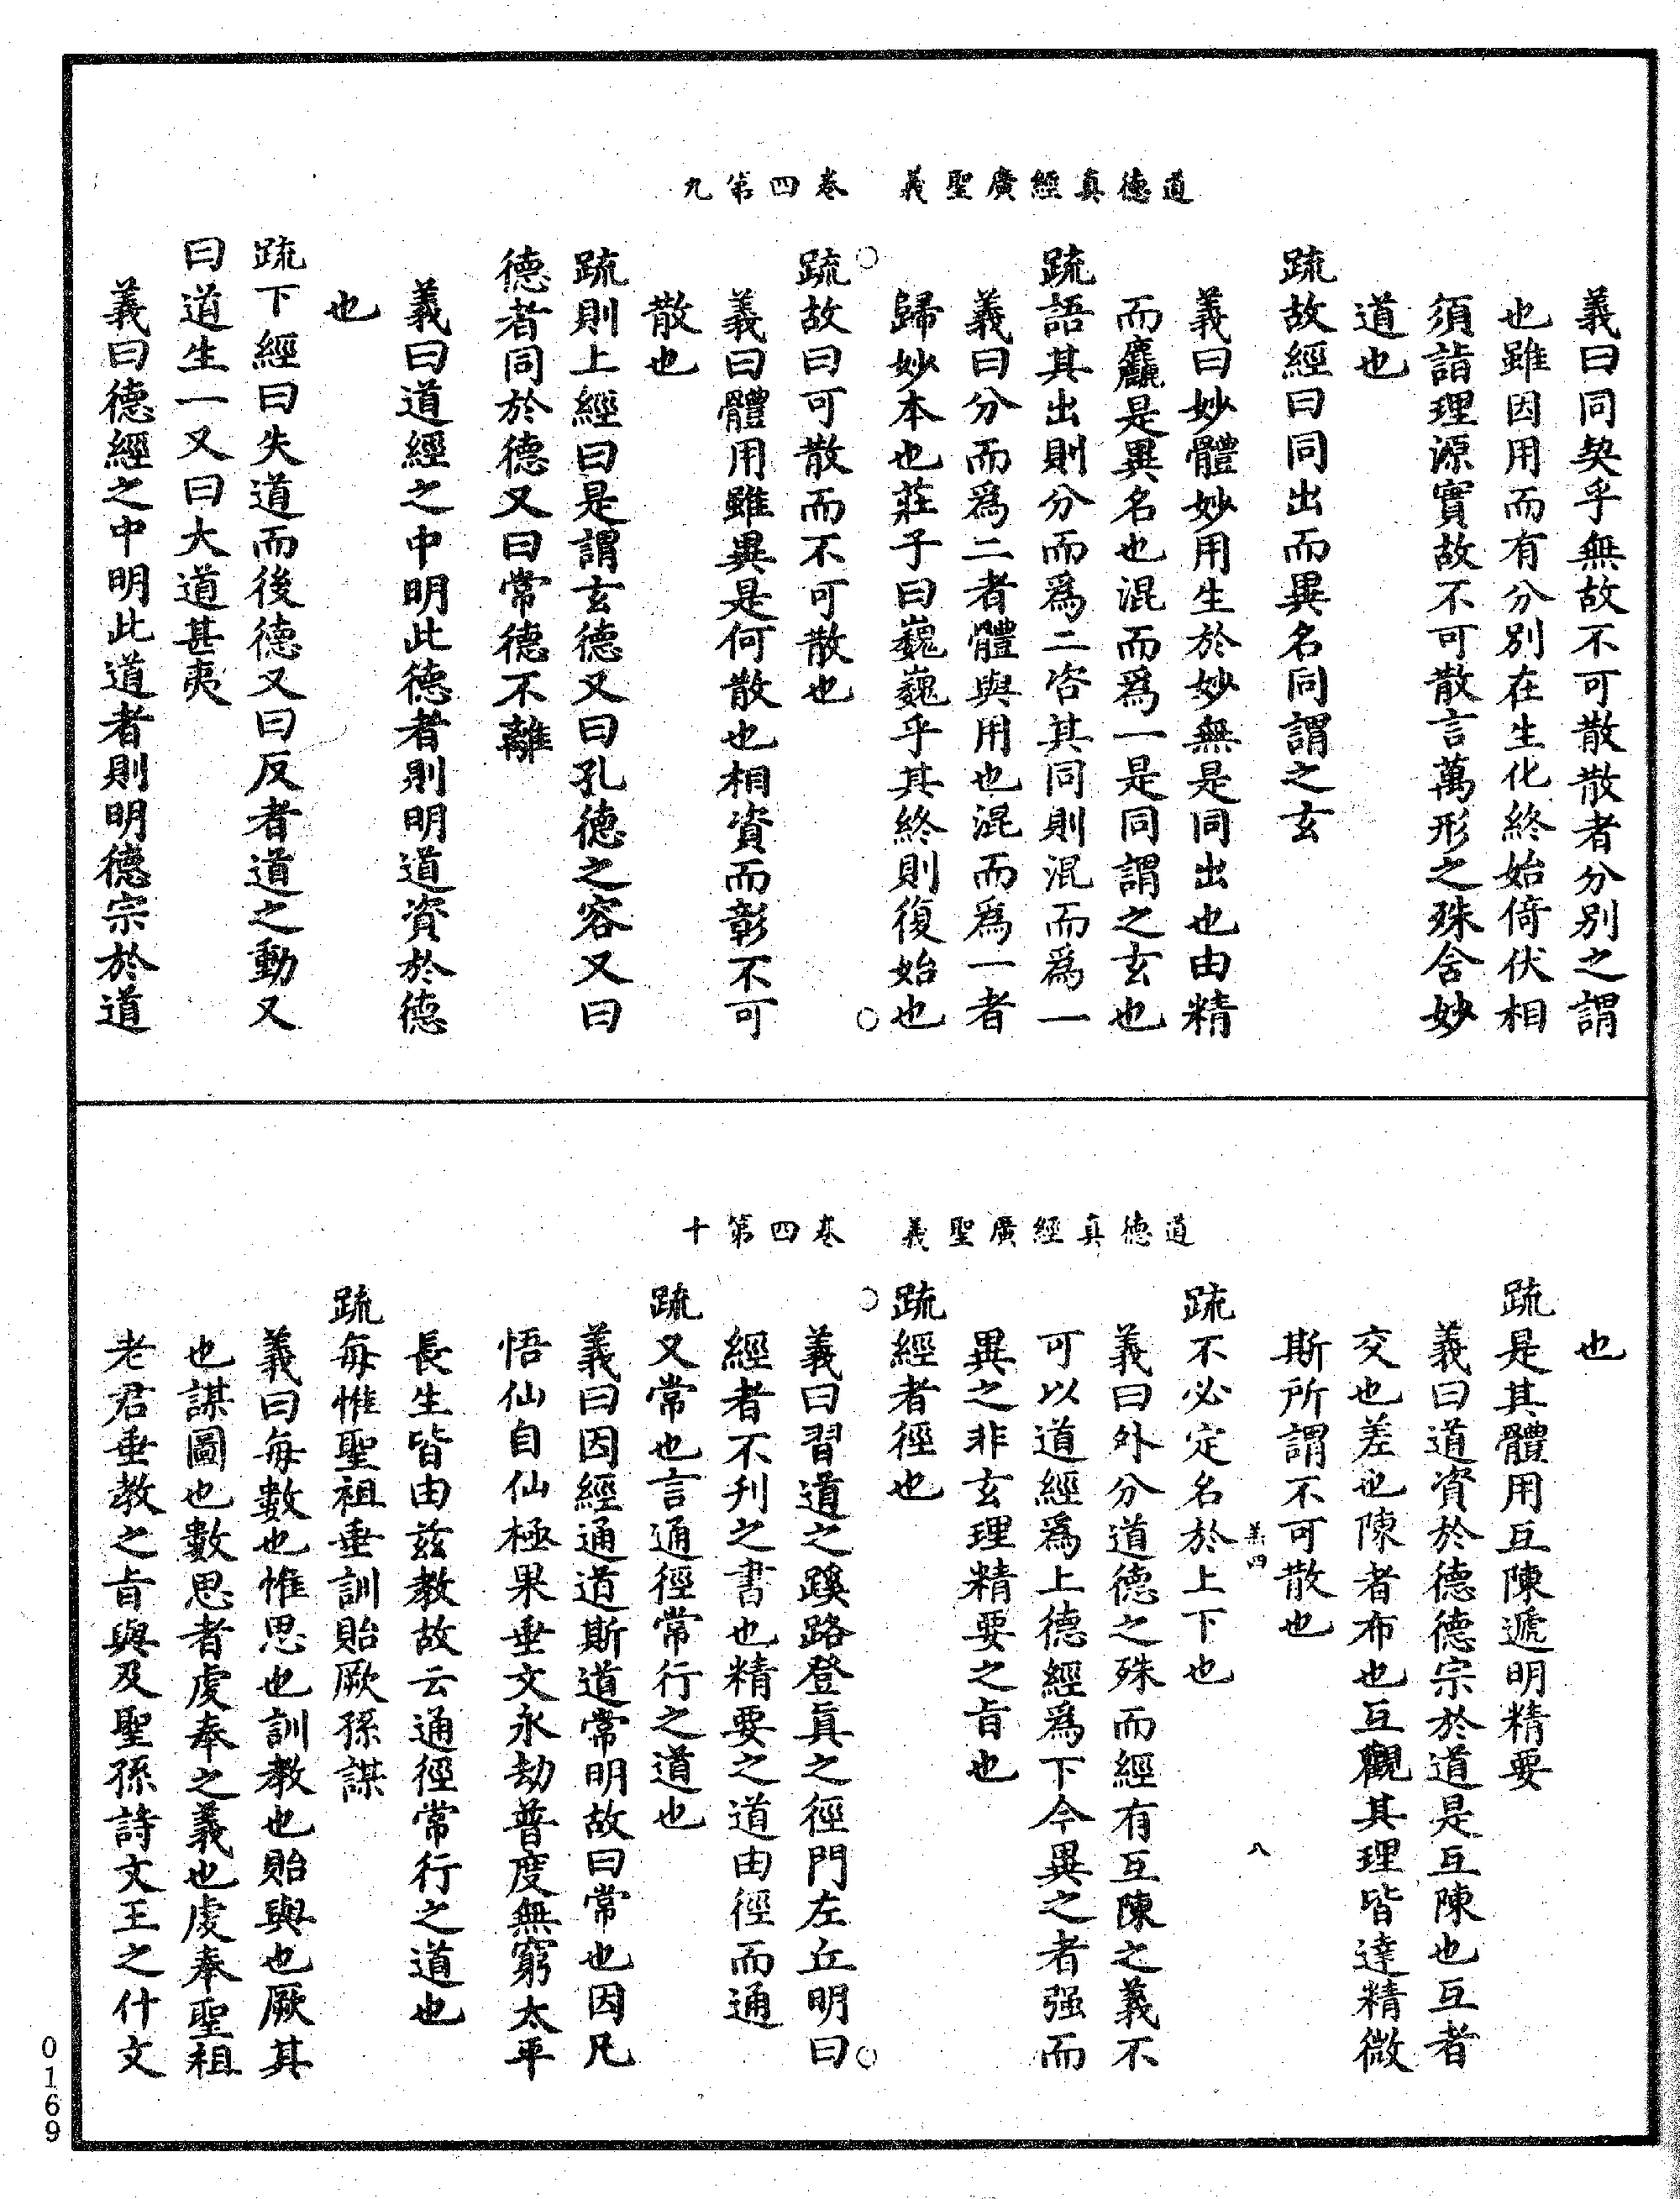 道德真經廣聖義　卷四第九
義曰同契乎無故不可散散者分別之謂
也雖因用而有分別在生化終始倚伏相
須詣理源實故不可散言萬形之殊含妙
道也
疏故經曰同出而異名同謂之玄
義曰妙體妙用生於妙無是同出也由精
而麤是異名也混而爲一是同謂之玄也
疏語其出則分而爲二咨其同則混而爲一
義曰分而爲二者體與用也混而爲一者
歸妙本也莊子曰巍巍乎其終則復始也
疏故曰可散而不可散也
義曰體用雖異是何散也相資而彰不可
散也
疏則上經曰是謂玄德又曰孔德之容又曰
德者同於德又曰常德不離
義曰道經之中明此德者則明道資於德
也
疏下經曰失道而後德又曰反者道之動又
曰道生一又曰大道甚夷
義曰德經之中明此道者則明德宗於道
道德真經廣聖義　卷四第十
也
疏是其體用互陳遞明精要
義曰道資於德德宗於道是互陳也互者
交也差也陳者布也互觀其理皆達精微
斯所謂不可散也
義四　八
疏不必定名於上下也
義曰外分道德之殊而經有互陳之義不
可以道經爲上德經爲下今異之者强而
異之非玄理精要之旨也
疏經者徑也
義曰習道之蹊路登眞之徑門左丘明曰
經者不刋之書也精要之道由徑而通
疏又常也言通徑常行之道也
義曰因經通道斯道常明故曰常也因凡
悟仙自仙極果垂文永劫普度無窮太平
長生皆由兹教故云通徑常行之道也
疏每惟聖祖垂訓貽厥孫謀
義曰每數也惟思也訓教也貽與也厥其
也謀圖也數思者虔奉之義也虔奉聖祖
老君垂教之旨與及聖孫詩文王之什文
0169